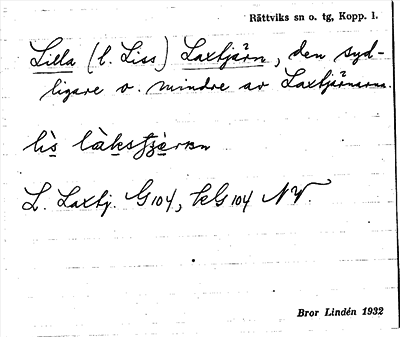 Rättviks sn o. tg, Kopp. l.
Lilla (l. Liss) Laxtjärn, den syd-
ligare o. mindre av Laxtjärnarna.
L. Laxtj. G104, kG104 NV.
Bror Lindén 1932